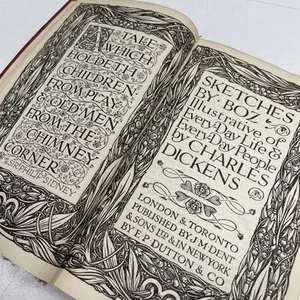 A TALE
WHICH
HOLDETH
CHILDREN
FROM PLAY
& OLD MEN
FROM THE
CHIMNEY
CORNER
SIR PHILIP SIDNEY
SKETCHES
BY · BOZ
Illustrative of
Every Day Life &
Every Day People
by CHARLES
DICKENS
LONDON & TORONTO
PUBLISHED BY J·M·DENT
& SONS LTD & IN NEW YORK
BY E·P·DUTTON & CO